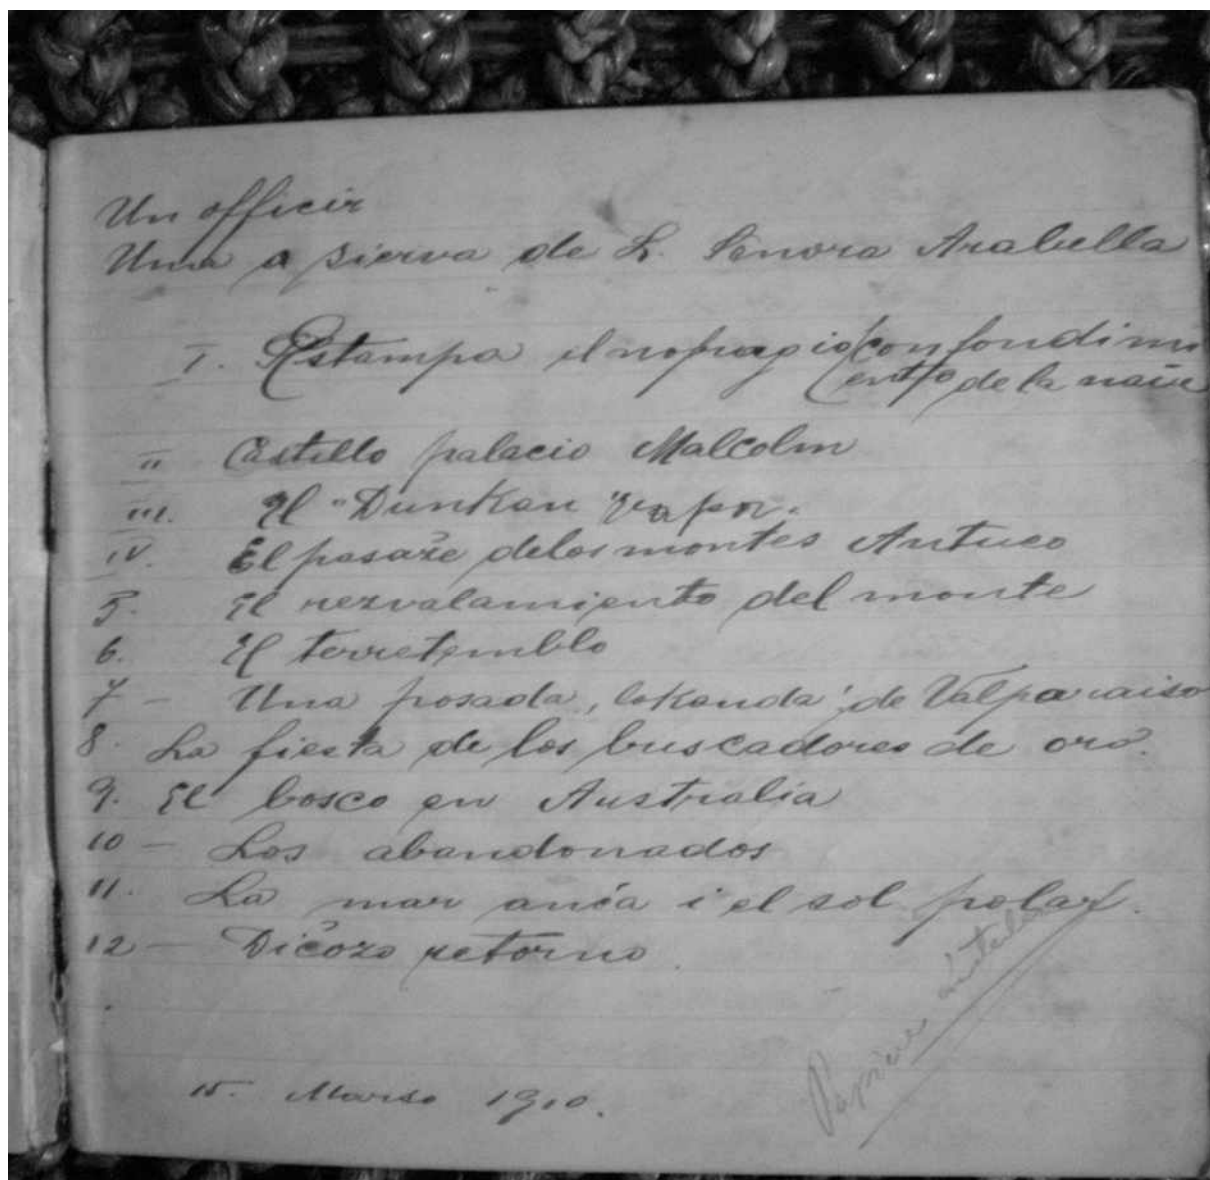 Un officir
Una a sierva de L. Senora Arabella
I. Estampa el nofragio (confondimi
ento de la nave
II Castillo palacio Malcolm
III. El "Dunkan" vapor.
IV. El pasaže delos montes Antuco
5. El rezvalamiento del monte
6. El terretemblo
7 - Una posada, lokanda, de Valparaiso
8. La fiesta de los buscadores de oro.
9. El bosco en Australia
10 - Los abandonados
11. La mar ancia i el sol polar.
12 - Dičozo retorno.
15. Marso 1910.